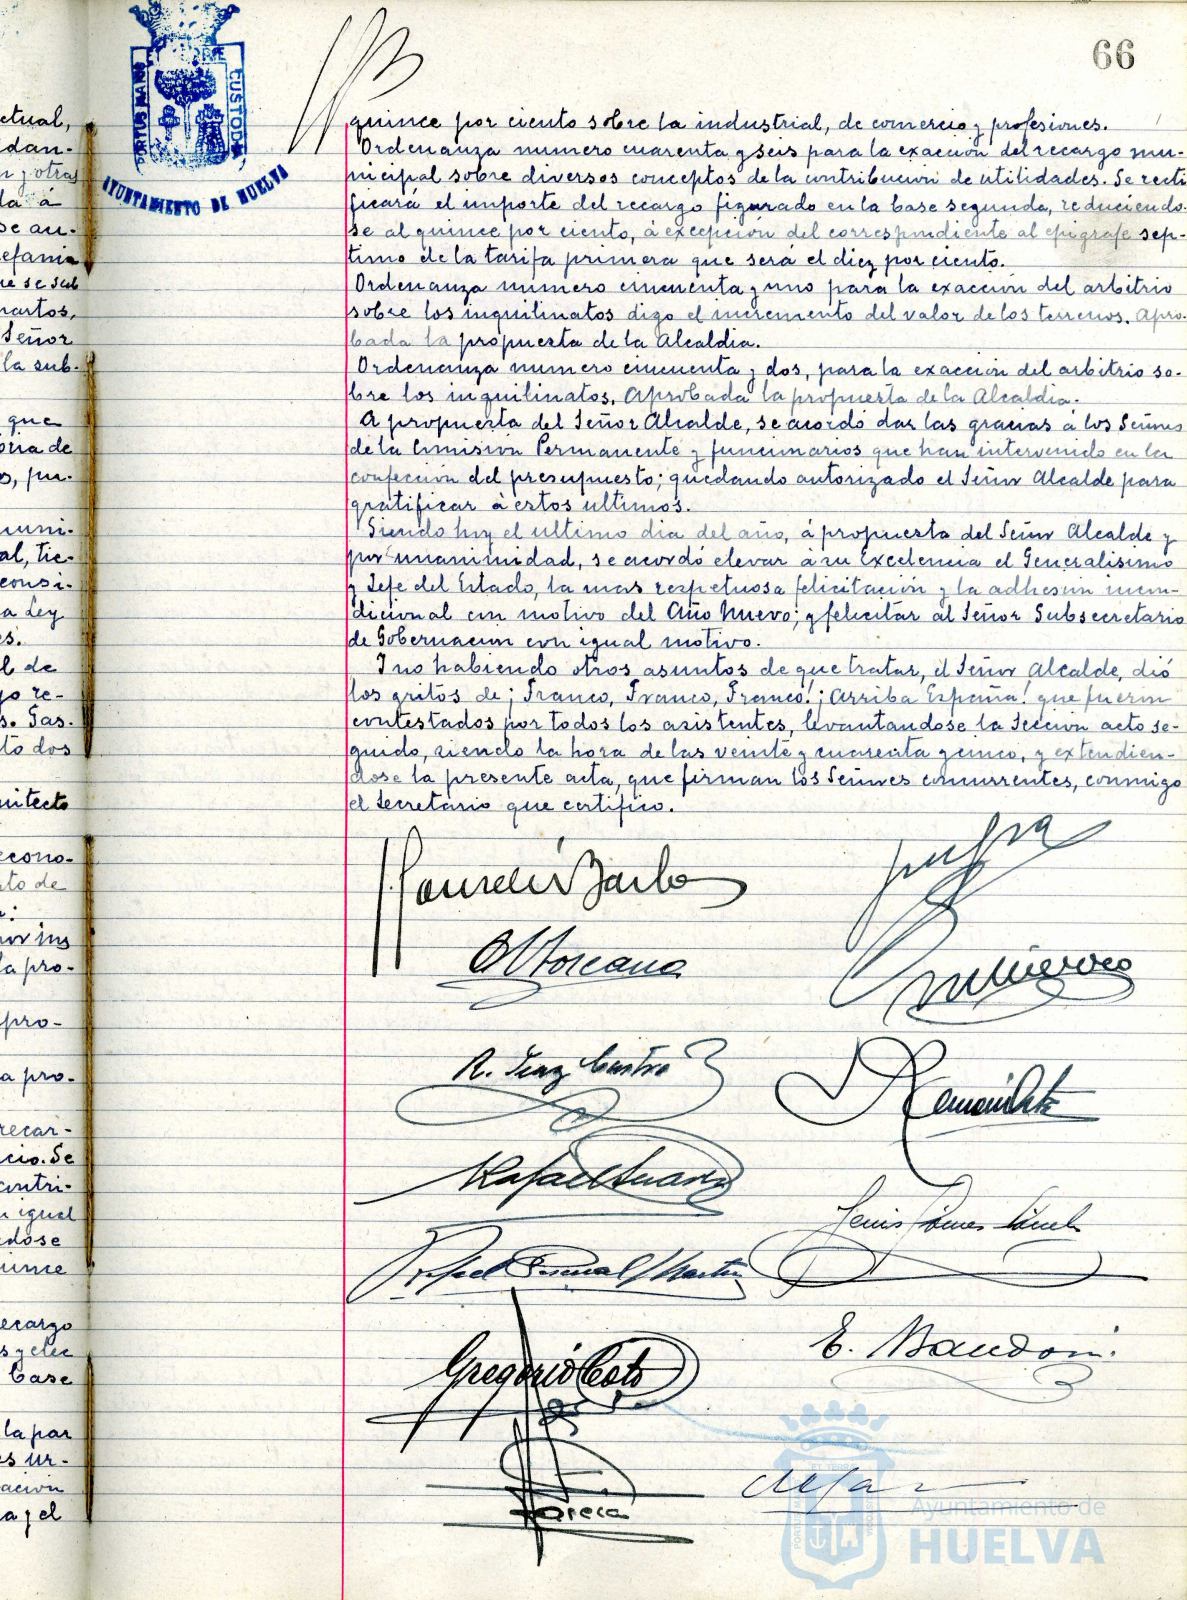 66
PORTUS MARIS
CUSTODIA
AYUNTAMIENTO DE HUELVA
quince por ciento sobre la industrial, de comercio y profesiones.
Ordenanza numero cuarenta y seis para la exacción del recargo mu-
nicipal sobre diversos conceptos de la contribucion de utilidades. Se recti
ficará el importe del recargo figurado en la base segunda, reduciendo-
se al quince por ciento, á excepción del correspondiente al epigrafe sep-
timo de la tarifa primera que será el diez por ciento.
Ordenanza numero cincuenta y uno para la exacción del arbitrio
sobre los inquilinatos digo el incremento del valor de los terrenos. Apro-
bada la propuesta de la Alcaldia.
Ordenanza numero cincuenta y dos, para la exacción del arbitrio so-
bre los inquilinatos. Aprobada la propuesta de la Alcaldia.
A propuesta del Señor Alcalde, se acordó dar las gracias á los Señores
de la Comisión Permanente y funcionarios que han intervenido en la
confección del presupuesto; quedando autorizado el Señor Alcalde para
gratificar á estos ultimos.
Siendo hoy el ultimo dia del año, á propuesta del Señor Alcalde y
por unanimidad, se acordó elevar á su Excelencia el Generalisimo
y Jefe del Estado, la mas respetuosa felicitación y la adhesión incon-
dicional con motivo del Año Nuevo; y felicitar al Señor Subsecretario
de Gobernacion con igual motivo.
I no habiendo otros asuntos de que tratar, el Señor Alcalde, dió
los gritos de ¡Franco, Franco, Franco! ¡Arriba España! que fueron
contestados por todos los asistentes, levantandose la Seccion acto se-
guido, siendo la hora de las veinte y cuarenta y cinco, y extendien-
dose la presente acta, que firman los Señores concurrentes, conmigo
el Secretario que certifico.
R. Diaz Castro
Rafael Suarez
Rafael Pascual Martin
E. Baudoin.
Gregorio Coto
Garcia
Ayuntamiento de
HUELVA
ctual,
dan-
n y otras
da á
se au-
efania
ue se sub
Señor
la sub-
que
oria de
os, pu-
muni-
al, tie-
consi-
a Ley
es.
l de
jo re-
s. Gas-
to dos
uitecto
econo-
to de
or ins
la pro-
pro-
a pro-
recar-
cio. Se
contri-
n igual
ndose
uince
ecargo
s y elec
base
la par
es ur-
ación
a y el